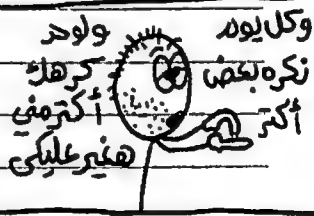 وكل يوم
نكره بعض
أكتر
ولوحد
كرهك
أكتر مني
هغير عليكي